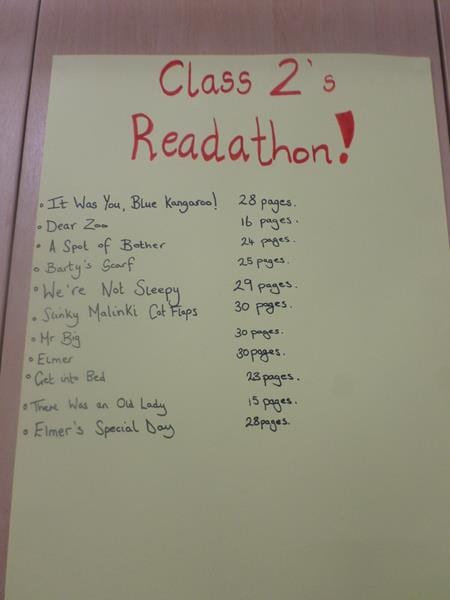 Class 2's
Readathon!
• It Was You, Blue Kangaroo! 28 pages.
• Dear Zoo 16 pages.
• A Spot of Bother 24 pages.
• Barty's Scarf 25 pages.
• We're Not Sleepy 29 pages.
• Slinky Malinki Cat Flaps 30 pages.
• Mr Big 30 pages.
• Elmer 30 pages.
• Get into Bed 23 pages.
• There Was an Old Lady 15 pages.
• Elmer's Special Day 28 pages.